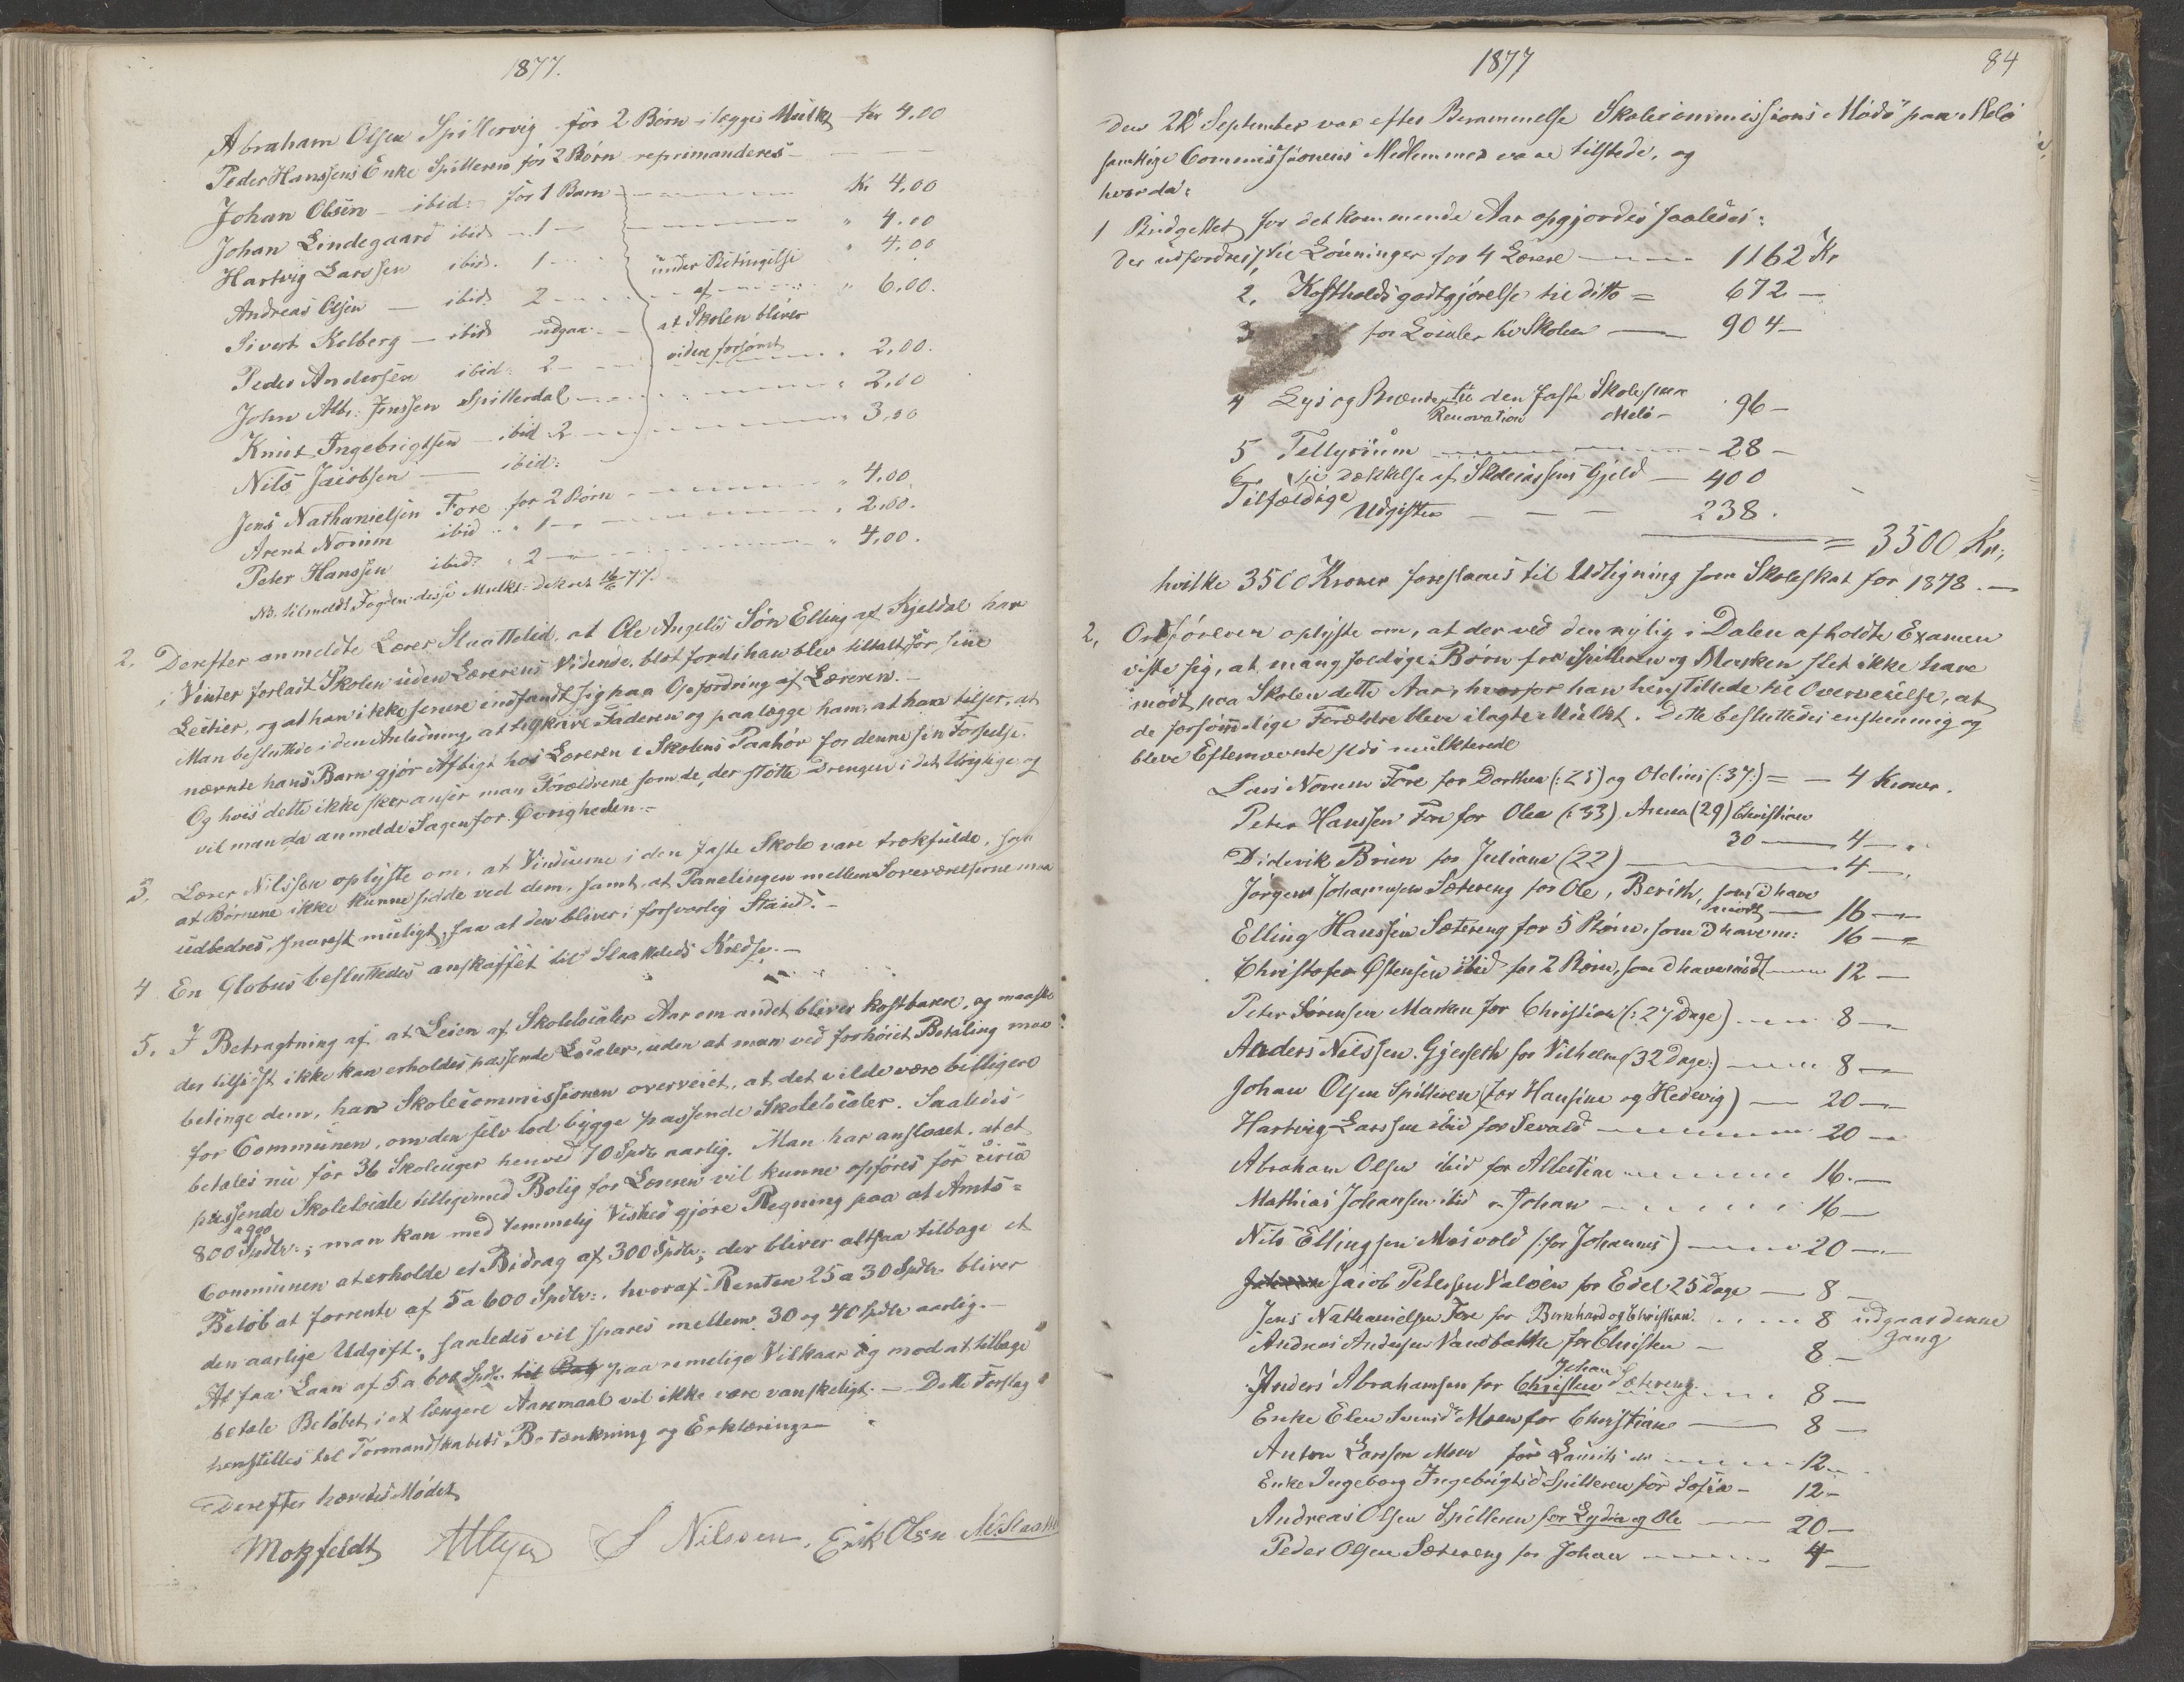 1877.
Abraham Olsen Spillervig for 2 Børn ilægges Mulkt Kr 4,00
Peder Hanssens Enke Spilleren for 2 Børn reprimanderes
Johan Olsen ibid: for 1 Barn Kr 4,00
Johan Lindegaard ibid 1 " 4.00
Hartvig Larssen ibid. 1 " 4.00
under Betingelse
Andreas Olsen ibid 2 af " 6,00.
Sivert Kolberg ibid udgaa at Skolen bliver
Peder Andersen ibid: 2 viden forsømt " 2,00.
John Alb: Jenssen Spillerdal " 2,00
Knut Ingebrigtsen ibid 2 3,00
Nils Jacobsen ibid:
Jens Nathanielsen Fore for 2 Børn " 4,00
Arent Norum ibid " 1 " 2,00.
Peter Hanssen ibid: " 2 " 4,00.
NB. tilmeldt Fogden disse Mulkt: dekret 16/6 77.
2. Derefter anmeldte Lærer Slaattelid, at Ole Angells Søn Elling af Kjeldal har
i Vinter forladt Skolen uden Lærerens Vidende, blot fordi han blev tiltalt for sine
Lectier, og at han ikke senere indfandt sig paa Opfordring af Læreren.
Man besluttede i den Anledning, at tilskrive Faderen og paalægge ham, at han tilser, at
nævnte hans Barn gjør Afbigt hos Læreren i Skolens Paahør for denne sin Forseelse.
Og hvis dette ikke sker anser man Forældrene som de, der støtte Drengen i det Urigtige og
vil man da anmelde Sagen for Øvrigheden.
3. Lærer Nilssen oplyste om, at Vinduerne i den faste Skole vare trækfulde, saa
at Børnene ikke kunne sidde ved dem, samt, at Panelingen mellem Soveværelserne maa
udbedres, snarest muligt, saa at den bliver i forsvarlig Stand.
4 En Globus besluttedes anskaffet til Slaattelids Kredse.
5. I Betragtning af, at Leien af Skolelocaler Aar om andet bliver kostbarere, og maaske
der tilsidst ikke kan erholdes passende Localer, uden at man ved forhøiet Betaling maa
betinge dem, har Skolecommissionen overveiet, at det vilde være billigere
for Communen, om den selv lod bygge passende Skolelocaler. Saaledes
betales nu for 36 Skoleuger henved 70 Spdlr aarlig. Man har anslaaet, at et
passende Skolelocale tilligemed Bolig for Læreren vil kunne opføres for circa
a 900
800 Spdlr:; man kan med temmelig Vished gjøre Regning paa at Amts=
Communen at erholde et Bidrag af 300 Spdlr; der bliver altsaa tilbage et
Beløb at forrente af 5 a 600 Spdlr:, hvoraf Renten 25 a 30 Spdlr bliver
den aarlige Udgift; saaledes vil spares mellem 30 og 40 Spdlr aarlig.
At faa Laan af 5 a 600 Spdr. paa rimelige Vilkaar og mod at tilbage
betale Beløbet i et længere Aaremaal vil ikke være vanskeligt. Dette Forslag
henstilles til Formandskabets Betænkning og Erklæring
Derefter hævedes Mødet
Motzfeldt S Nilssen, Erik Olsen
1877 84
Den 22 September var efter Berammelse Skolecommissions Møde paa Melø
samtlige Commissionens Medlemmer vare tilstede, og
hvorda:
1 Budgettet for det kommende Aar opgjordes saaledes:
Der udfordres 1, til Lønninger for 4 Lærere 1162 Kr
2, Kostholdsgodtgjørelse til ditto = 672
3 for Localer til Skolen 904
4 Lys og Brænde til den faste Skole paa
Renovation Melø 96
5 Tellurium 28
6 til Dækkelse af Skolecassens Gjeld 400
Tilfældige Udgifter 238.
= 3500 Kr,
hvilke 3500 Kroner foreslaaes til Udligning som Skoleskat for 1878.
2, Ordføreren oplyste om, at der ved den nylig i Dalen afholdte Examen
viste sig, at mangfoldige Børn fra Spilleren og Marken slet ikke have
mødt paa Skolen dette Aar, hvorfor han henstillede til Overveielse, at
de forsømmelige Forældre bleve ilagte Mulkt. Dette besluttedes enstemmig og
bleve Eftermeldte mulkterede
Lars Norum Fore for Dorthea (:25) og Oldine (:37:) = 4 Kroner.
Peter Hanssen Fore for Olea (:33), Anna (29) Christian
30 4
Diderik Brun for Juliane (22) 4
Jørgen Johannesen Sætereng for Ole, Berith, som ei have
mødt 16
Elling Hanssen Sætereng for 5 Børn, som ei have m: 16
Christofer Østensen ibid for 2 Børn, som ei have mødt 12
Peter Sørensen Marken for Christian (:27 Dage) 8
Anders Nilssen Gjerseth for Vilhelm (32 Dage:) 8
Johan Olsen Spilleren (for Hansine og Hedevig) 20
Hartvig Larssen ibid for Sevald 20
Abraham Olsen ibid for Albertine 16.
Mathias Johansen ibid " Johan 16
Nils Ellingsen Moivold (:for Johannes) 20
Jacob Petersen Valøen for Edel 25 Dage 8
Jens Nathanielsen Fore for Bernhard og Christian 8 udgaar denne
Gang
Andreas Andersen Vandbakke for Christen 8
Johan
Anders Abrahamsen for Christen Sætereng 8
Enke Elen Svensd. Moen for Christian 8
Anton Larssen Moen for Laurits 12
Enke Ingeborg Ingebrigtsd Spilleren for Sofia 12
Andreas Olsen Spilleren for Lydia og Ole 20
Peder Olsen Sætereng for Johan 4